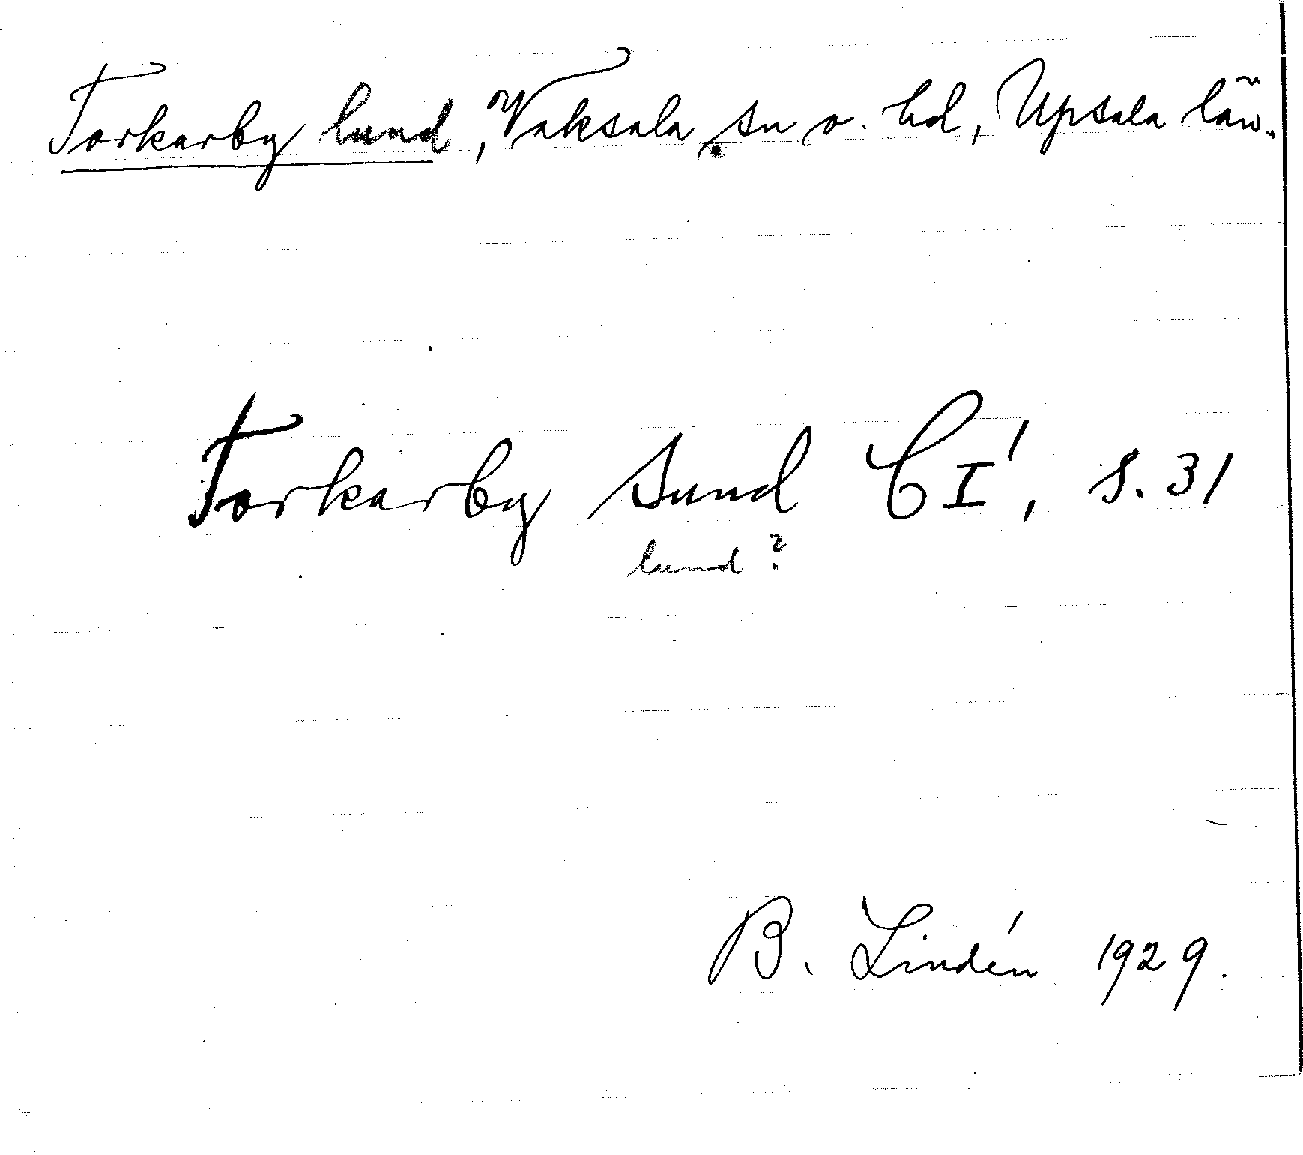 Torkarby lund, Vaksala sn o. hd, Upsala län.
Torkarby sund C I', s. 31
lund?
B. Lindén 1929.